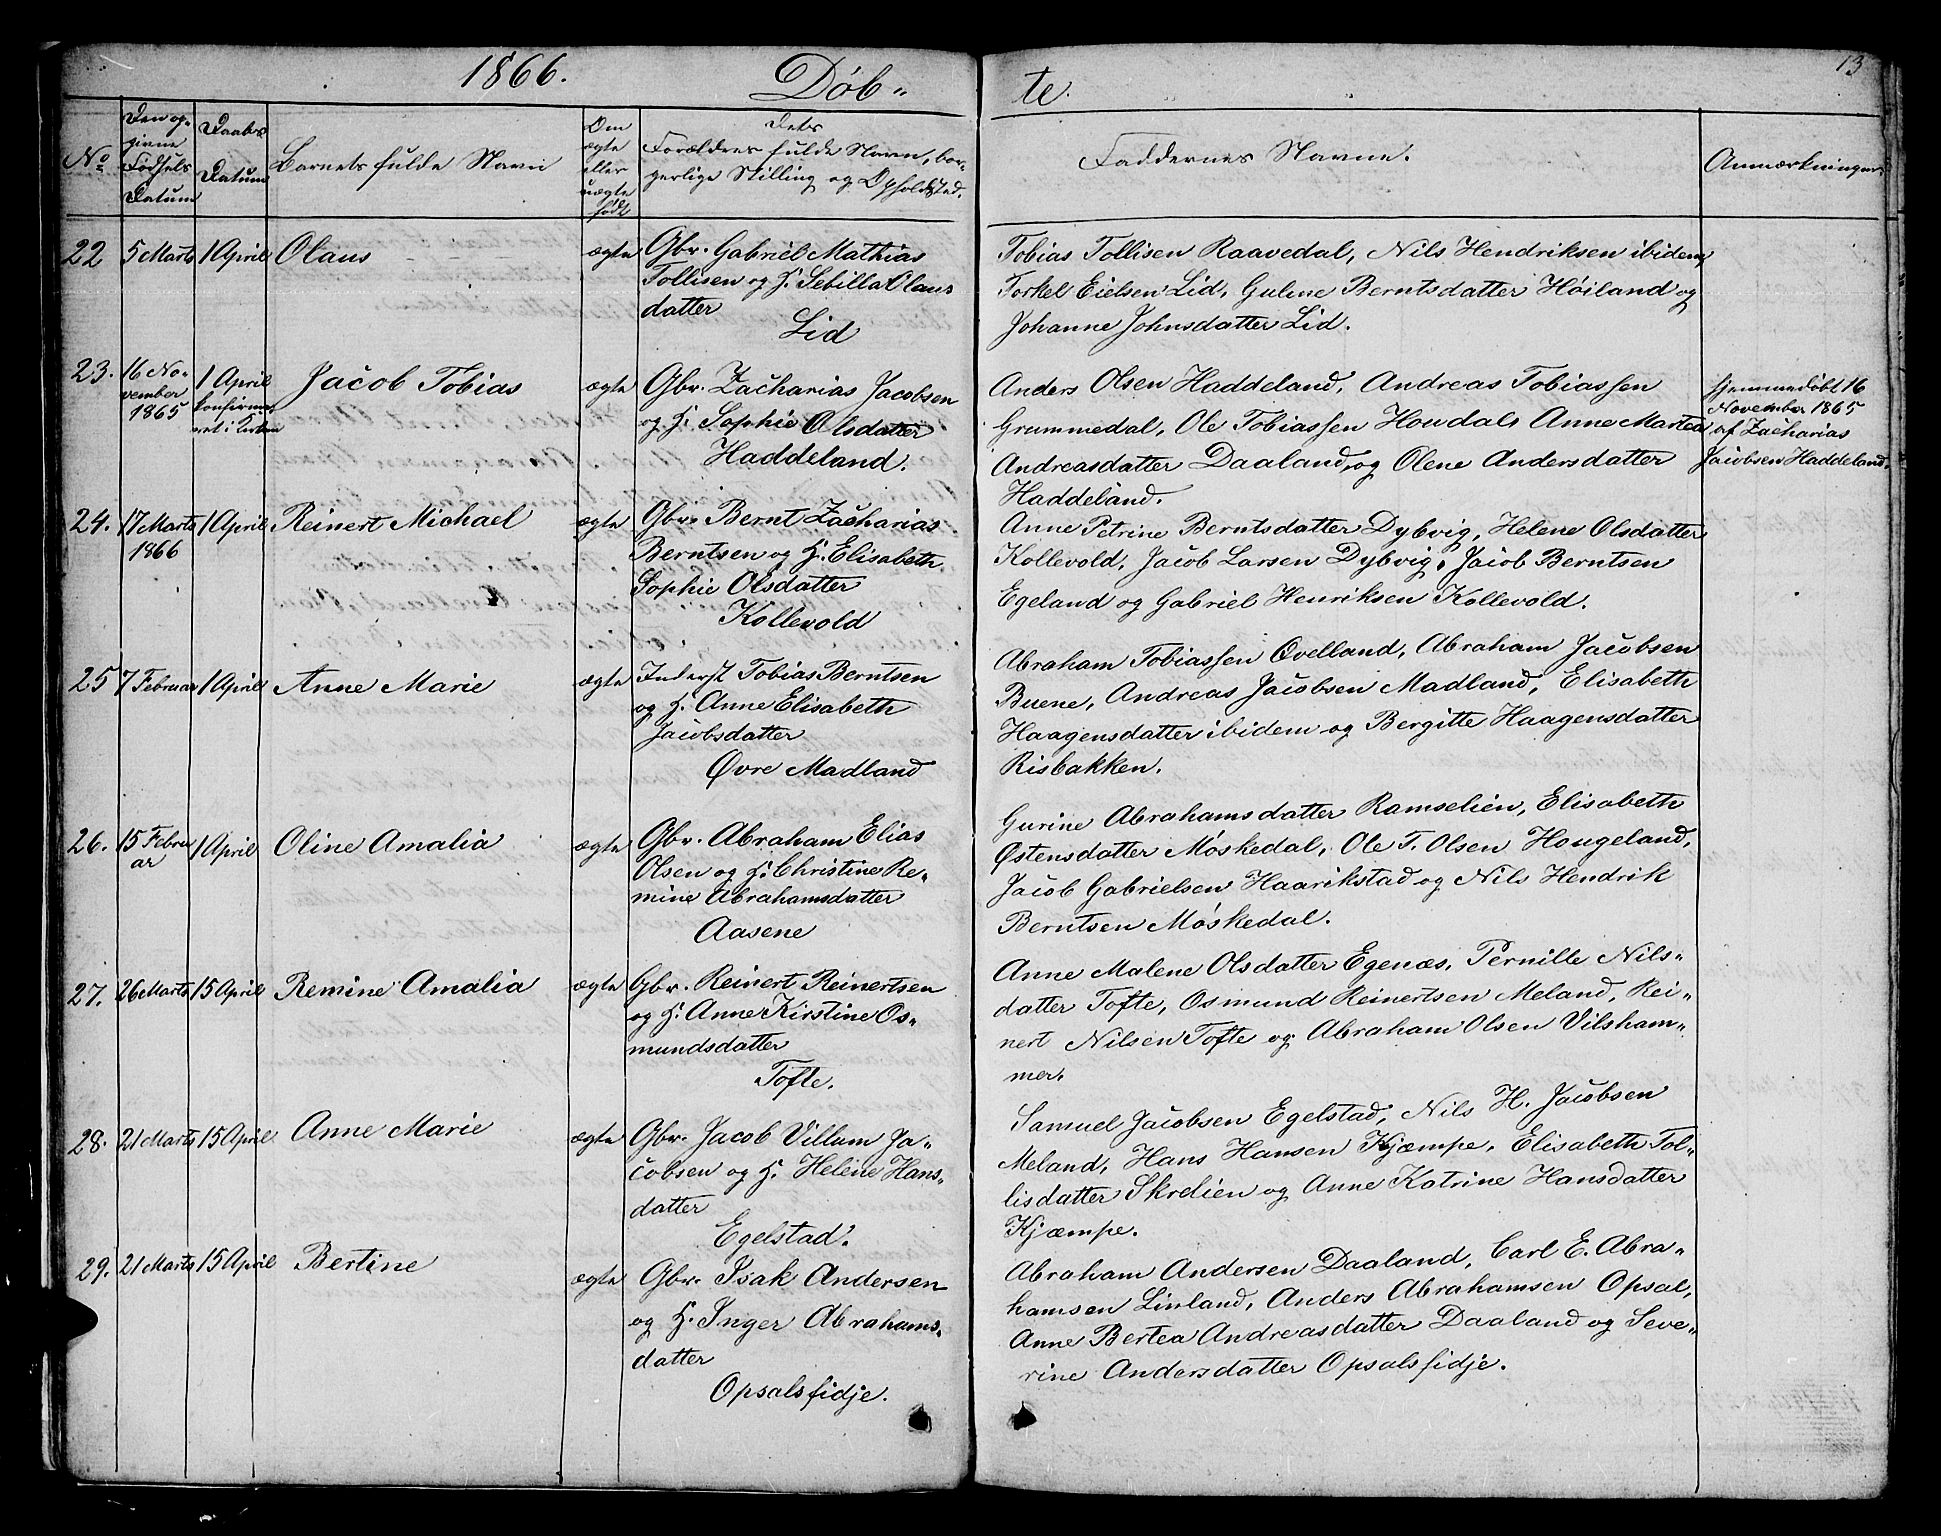 1866. Døb-
te.
13
No
Den op-
givne
Fødsels
Datum
Daabs
Datum
Barnets fulde Navn
Om
ægte
eller
uægte
født
Dets
Forældres fulde Navn, bor-
gerlige Stilling og Opholdssted.
Faddernes Navne.
Anmærkninger
22 5 Marts 1 April Olaus ægte Gbr. Gabriel Mathias
Tollisen og H. Sebilla Olaus
datter
Lid
Tobias Tollisen Raavedal, Nils Hendriksen ibidem,
Torkel Eielsen Lid, Guline Berntsdatter Høiland og
Johanne Johnsdatter Lid.
23. 16 No-
vember
1865
1 April
konfirme-
ret i Kirken
Jacob Tobias ægte Gbr. Zacharias Jacobsen
og H. Sophie Olsdatter
Haddeland.
Anders Olsen Haddeland, Andreas Tobiassen
Grummedal, Ole Tobiassen Houdal Anne Martea
Andreasdatter Daaland, og Olene Andersdatter
Haddeland.
hjemmedøbt 16
November 1865
af Zacharias
Jacobsen Haddeland.
24. 17 Marts
1866
1 April Reinert Michael ægte Gbr. Bernt Zacharias
Berntsen og H. Elisabeth
Sophie Olsdatter
Kollevold
Anne Petrine Berntsdatter Dybvig, Helene Olsdatter
Kollevold, Jacob Larsen Dybvig, Jacob Berntsen
Egeland og Gabriel Henriksen Kollevold.
25 7 Februar 1 April Anne Marie ægte Inderst Tobias Berntsen
og H. Anne Elisabeth
Jacobsdatter
Øvre Madland
Abraham Tobiassen Ovelland, Abraham Jacobsen
Buene, Andreas Jacobsen Madland, Elisabeth
Haagensdatter ibidem og Bergitte Haagensdatter
Risbakken.
26. 15 Febru
ar
1 April Oline Amalia ægte Gbr. Abraham Elias
Olsen og H. Christine Re-
mine Abrahamsdatter
Aasene
Gurine Abrahamsdatter Ramselien, Elisabeth
Østensdatter Møskedal, Ole T. Olsen Hougeland,
Jacob Gabrielsen Haarikstad og Nils Hendrik
Berntsen Møskedal.
27. 26 Marts 15 April Remine Amalia ægte Gbr. Reinert Reinertsen
og H. Anne Kirstine Os-
mundsdatter
Tofte.
Anne Malene Olsdatter Egenæs, Pernille Nils-
datter Tofte, Osmund Reinertsen Meland, Rei-
nert Nilsen Tofte og Abraham Olsen Vilsham-
mer.
28. 21 Marts 15 April Anne Marie ægte Gbr. Jacob Villum Ja-
cobsen og H. Helene Hans-
datter
Egelstad.
Samuel Jacobsen Egelstad, Nils H. Jacobsen
Meland, Hans Hansen Kjæmpe, Elisabeth Tol-
lisdatter Skrelien og Anne Katrine Hansdatter
Kjæmpe.
29. 21 Marts 15 April Bertine ægte Gbr. Isak Andersen
og H. Inger Abrahams-
datter
Opsalsfidje.
Abraham Andersen Daaland, Carl E. Abra-
hamsen Linland, Anders Abrahamsen Opsal,
Anne Bertea Andreasdatter Daaland og Seve-
rine Andersdatter Opsalsfidje.